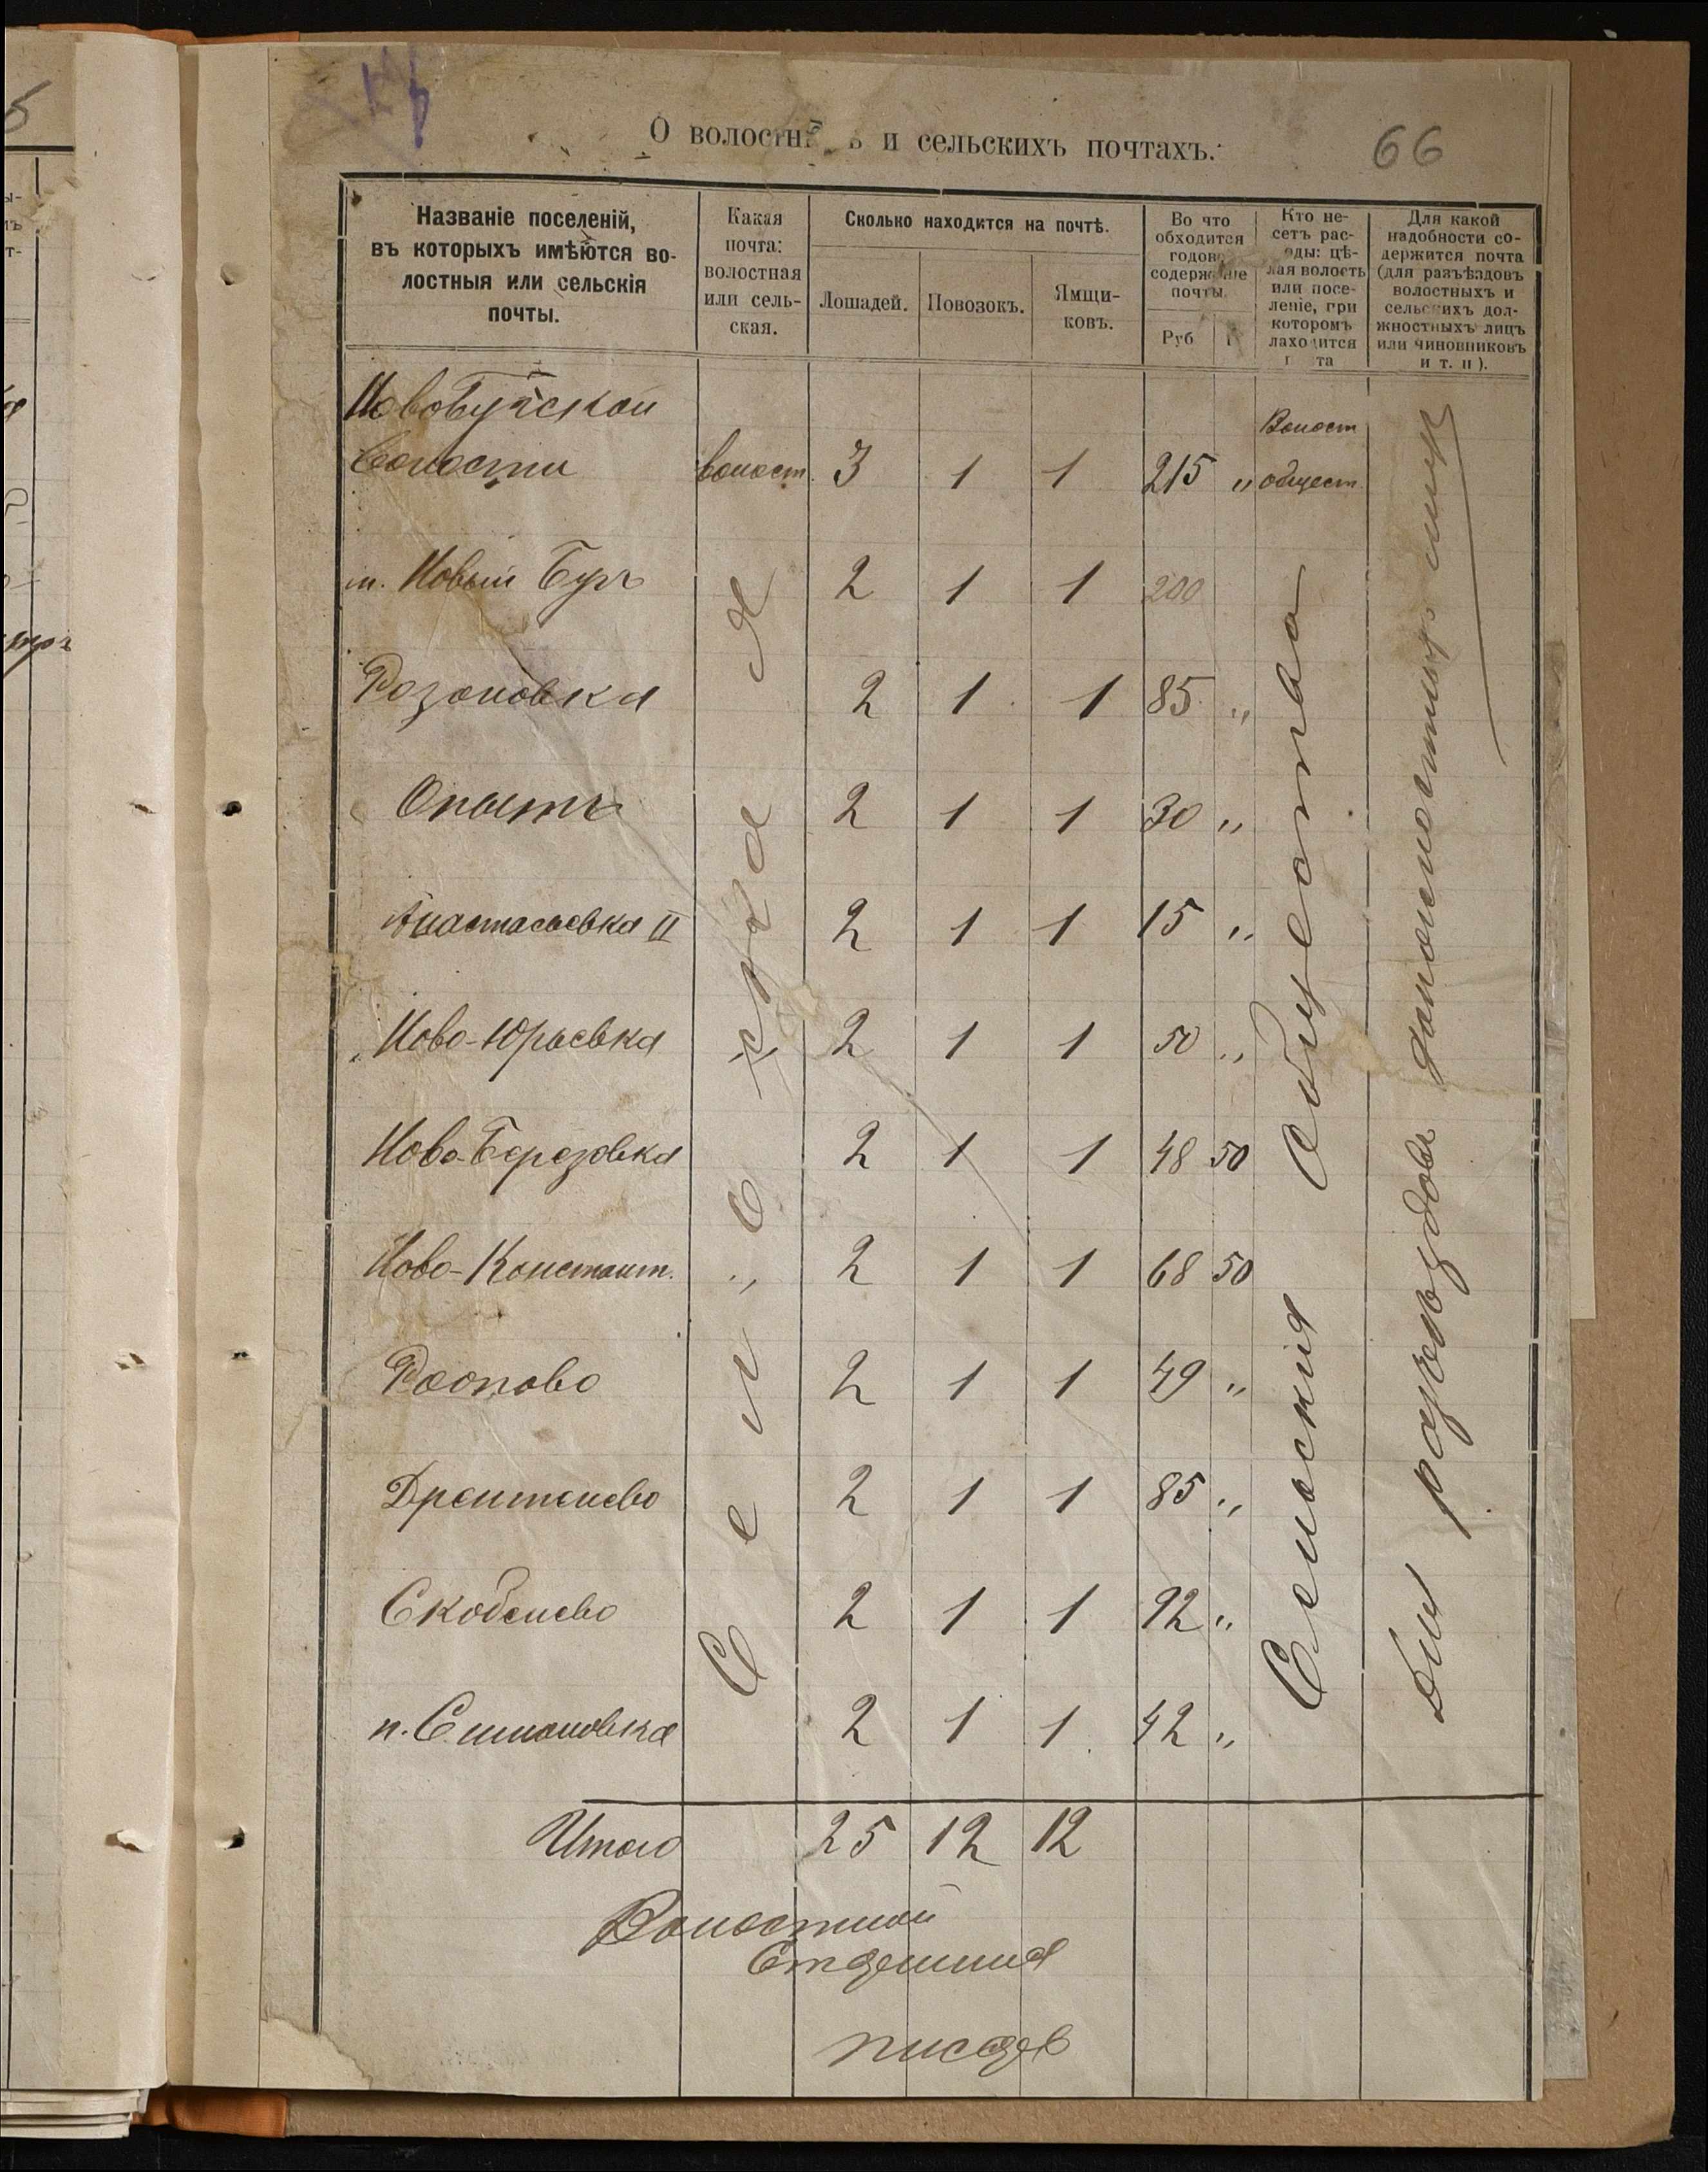 66
О волостн ъ и сельскихъ почтахъ.
Названіе поселеній, въ которыхъ имѣются во-лостныя или сельскія почты.
Какая почта: волостная или сель-ская.
Сколько находится на почтѣ.
Лошадей.
Повозокъ.
Ямщи-ковъ.
Во что обходится годово содержаніе почты
Руб
Кто не-сетъ рас-оды: цѣ-лая волость или посе-леніе, при которомъ находится та
Для какой надобности со-держится почта (для разъѣздовъ волостныхъ и сельскихъ дол-жностныхъ лицъ или чиновниковъ и т. п).
Новобугской
Волости волост. 3 1 1 215 " Волост общест.
м. Новый Бугъ 2 1 1 200
Розановка 2 1 1 85 "
Опытъ 2 1 1 30 "
Анастасьевка II 2 1 1 15 "
Ново-Юрьевка 2 1 1 50 "
Ново-Березовка 2 1 1 48 50
Ново-Констант. 2 1 1 68 50
Раопово 2 1 1 49 "
Дрентелево 2 1 1 85 "
Скобелево 2 1 1 92 "
п. Симоновка 2 1 1 42 "
Сельская
Сельскія Общества
Для разъѣздовъ должностныхъ лицъ
Итого 25 12 12
Волостной